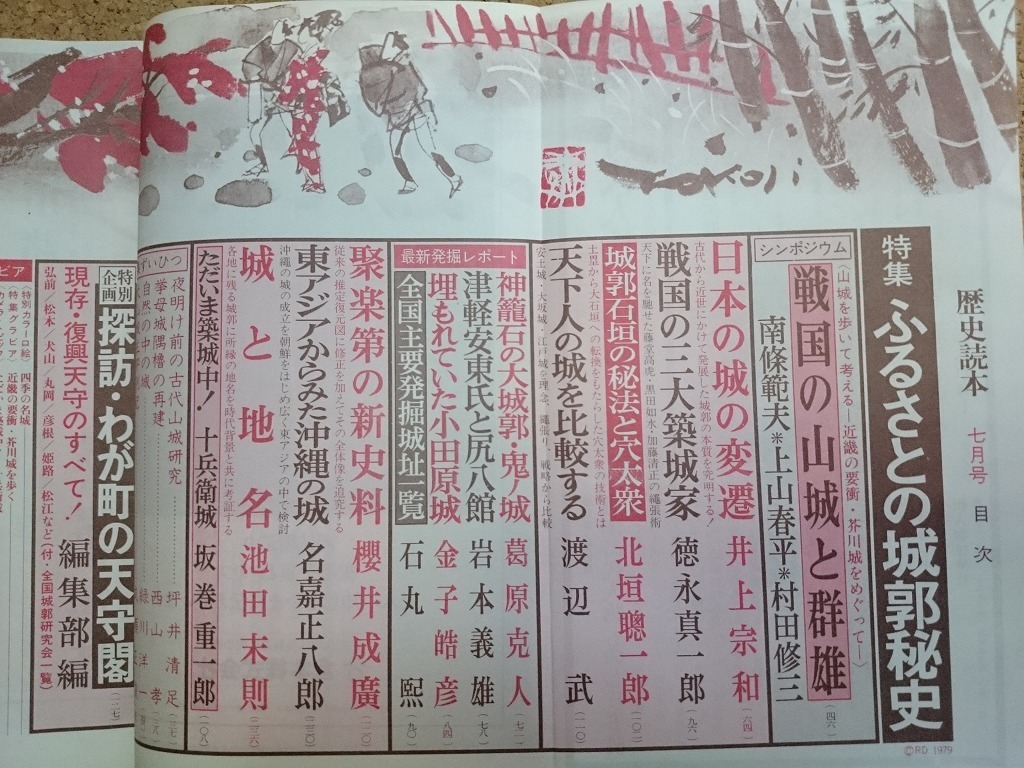 歴史読本 七月号 目次
特集 ふるさとの城郭秘史
シンポジウム
〈山城を歩いて考える―近畿の要衝・芥川城をめぐって―〉
戦国の山城と群雄 (四六)
南條範夫＊上山春平＊村田修三
古代から近世にかけて発展した城郭の本質を究明する!
日本の城の変遷 井上宗和 (六四)
天下に名を馳せた藤堂高虎・黒田如水・加藤清正の縄張術
戦国の三大築城家 徳永真一郎 (九六)
土塁から大石垣への転換をもたらした穴太衆の技術とは
城郭石垣の秘法と穴太衆 北垣聰一郎 (一〇二)
安土城・大坂城・江戸城を理念、縄張り、戦略から比較
天下人の城を比較する 渡辺武 (一一〇)
最新発掘レポート
神籠石の大城郭・鬼ノ城 葛原克人 (七二)
津軽安東氏と尻八館 岩本義雄 (七八)
埋もれていた小田原城 金子皓彦 (八四)
全国主要発掘城址一覧 石丸熙 (九〇)
従来の推定復元図に修正を加えてその全体像を追究する
聚楽第の新史料 櫻井成廣 (一二〇)
沖縄の城の成立を朝鮮をはじめ広く東アジアの中で検討
東アジアからみた沖縄の城 名嘉正八郎
各地に残る城郭に所縁の地名を時代背景と共に考証する
城と地名 池田末則 (二三六)
ただいま築城中! 十兵衛城 坂巻重一郎 (一〇八)
ずいひつ
夜明け前の古代山城研究 坪井清足
挙母城隅櫓の再建 西山孝
自然の中の城
特別企画
探訪・わが町の天守閣
現存・復興天守のすべて! 編集部編 (二一七)
弘前/松本/犬山/丸岡/彦根/姫路/松江など(付・全国城郭研究会一覧)
〈特別カラー口絵〉 四季の名城
〈特集グラビア〉 近畿の要衝・芥川城を歩く
©RD 1979